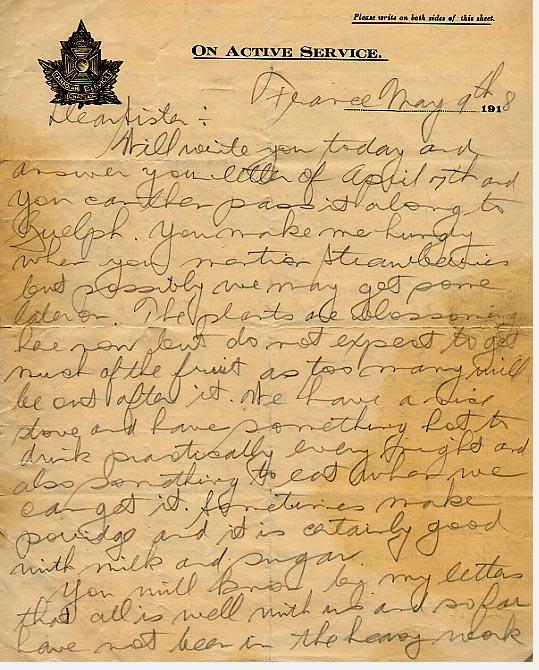 Please write on both sides of this sheet.
ON ACTIVE SERVICE.
France May 9th 1918
Dear Sister:
Will write you today and
answer your letter of April 17th and
you can then pass it along to
Guelph. You make me hungry
when you mention strawberries
but possibly we may get some
later on. The plants are blossoming
here now but do not expect to get
much of the fruit as too many will
be out after it. We have a nice
stove and have something hot to
drink practically every night and
also something to eat when we
can get it. Sometimes make
porridge and it is certainly good
with milk and sugar
You will know by my letters
that all is well with us and so far
have not been in the heavy work